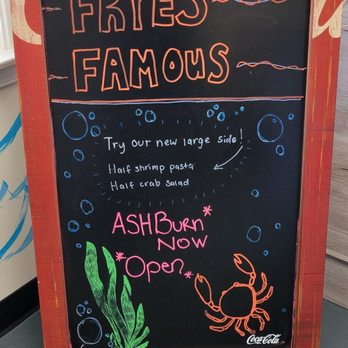 FRYES
FAMOUS
Try our new large side!
Half shrimp pasta
Half crab salad
ASHBurn*
NOW
*Open*
Coca-Cola